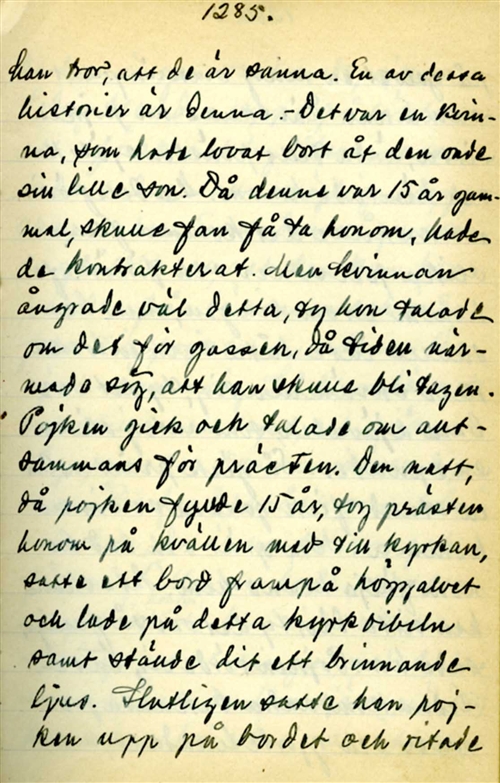 1285.
han tror, att de är sanna. En av dessa
historier är denna. - Det var en kvin-
na, som hade lovat bort åt den onde
sin lille son. Då denne var 15 år gam-
mal, skulle fan få ta honom, hade
de kontrakterat. Men kvinnan
ångrade väl detta, ty hon talade
om det för gossen, då tiden när-
made sig, att han skulle bli tagen.
Pojken gick och talade om allt-
sammans för prästen. Den natt,
då pojken fyllde 15 år, tog prästen
honom på kvällen med till kyrkan,
satte ett bord fram på högalvet
och lade på detta kyrkbibeln
samt ställde dit ett brinnande
ljus. Slutligen satte han poj-
ken upp på bordet och ritade